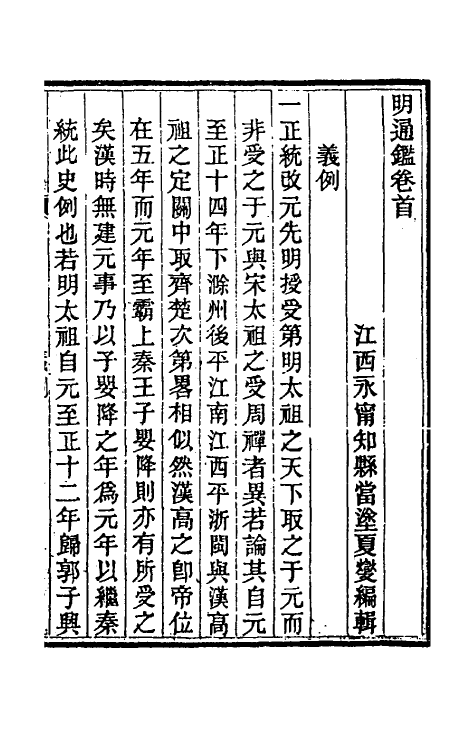 明通鑑卷首
江西永甯知縣當塗夏燮編輯
義例
一正統改元先明授受第明太祖之天下取之于元而
非受之于元與宋太祖之受周禪者異若論其自元
至正十四年下滁州後平江南江西平浙閩與漢高
祖之定關中取齊楚次第畧相似然漢高之卽帝位
在五年而元年至霸上秦王子嬰降則亦有所受之
矣漢時無建元事乃以子嬰降之年爲元年以繼秦
統此史例也若明太祖自元至正十二年歸郭子興